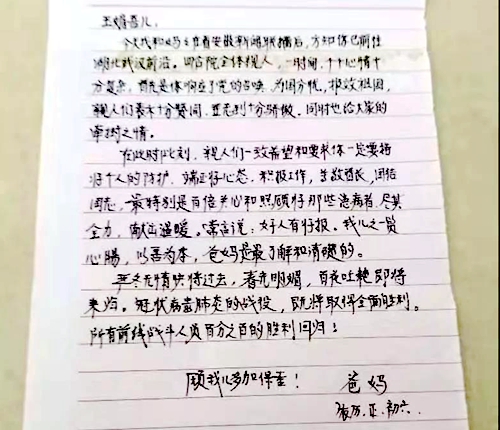 王婧吾儿：
今天我和妈妈在看安徽新闻联播后，方知你已前往
湖北武汉前沿。四合院全体亲人，一时间，个个心情十
分复杂，首先是你响应了党的召唤，为国分忧，报效祖国，
亲人们表示十分赞同，并感到十分骄傲。同时也给大家的
牵挂之情。
在此时此刻，亲人们一致希望和要求你一定要搞
好个人的防护，端正好心态，积极工作，尊敬首长，团结
同志，最特别是百倍关心和照顾好那些患病者，尽其
全力，献出温暖。常言说：好人有好报。我儿之一贯
心肠，以善为本，爸妈是最了解和清晰的。
严冬无情快将过去，春光明媚，百花吐艳即将
来临。冠状病毒肺炎的战役，即将取得全面胜利。
所有前线战斗人员百分之百的胜利回归！
愿我儿多加保重！ 爸妈
农历.正.初六.